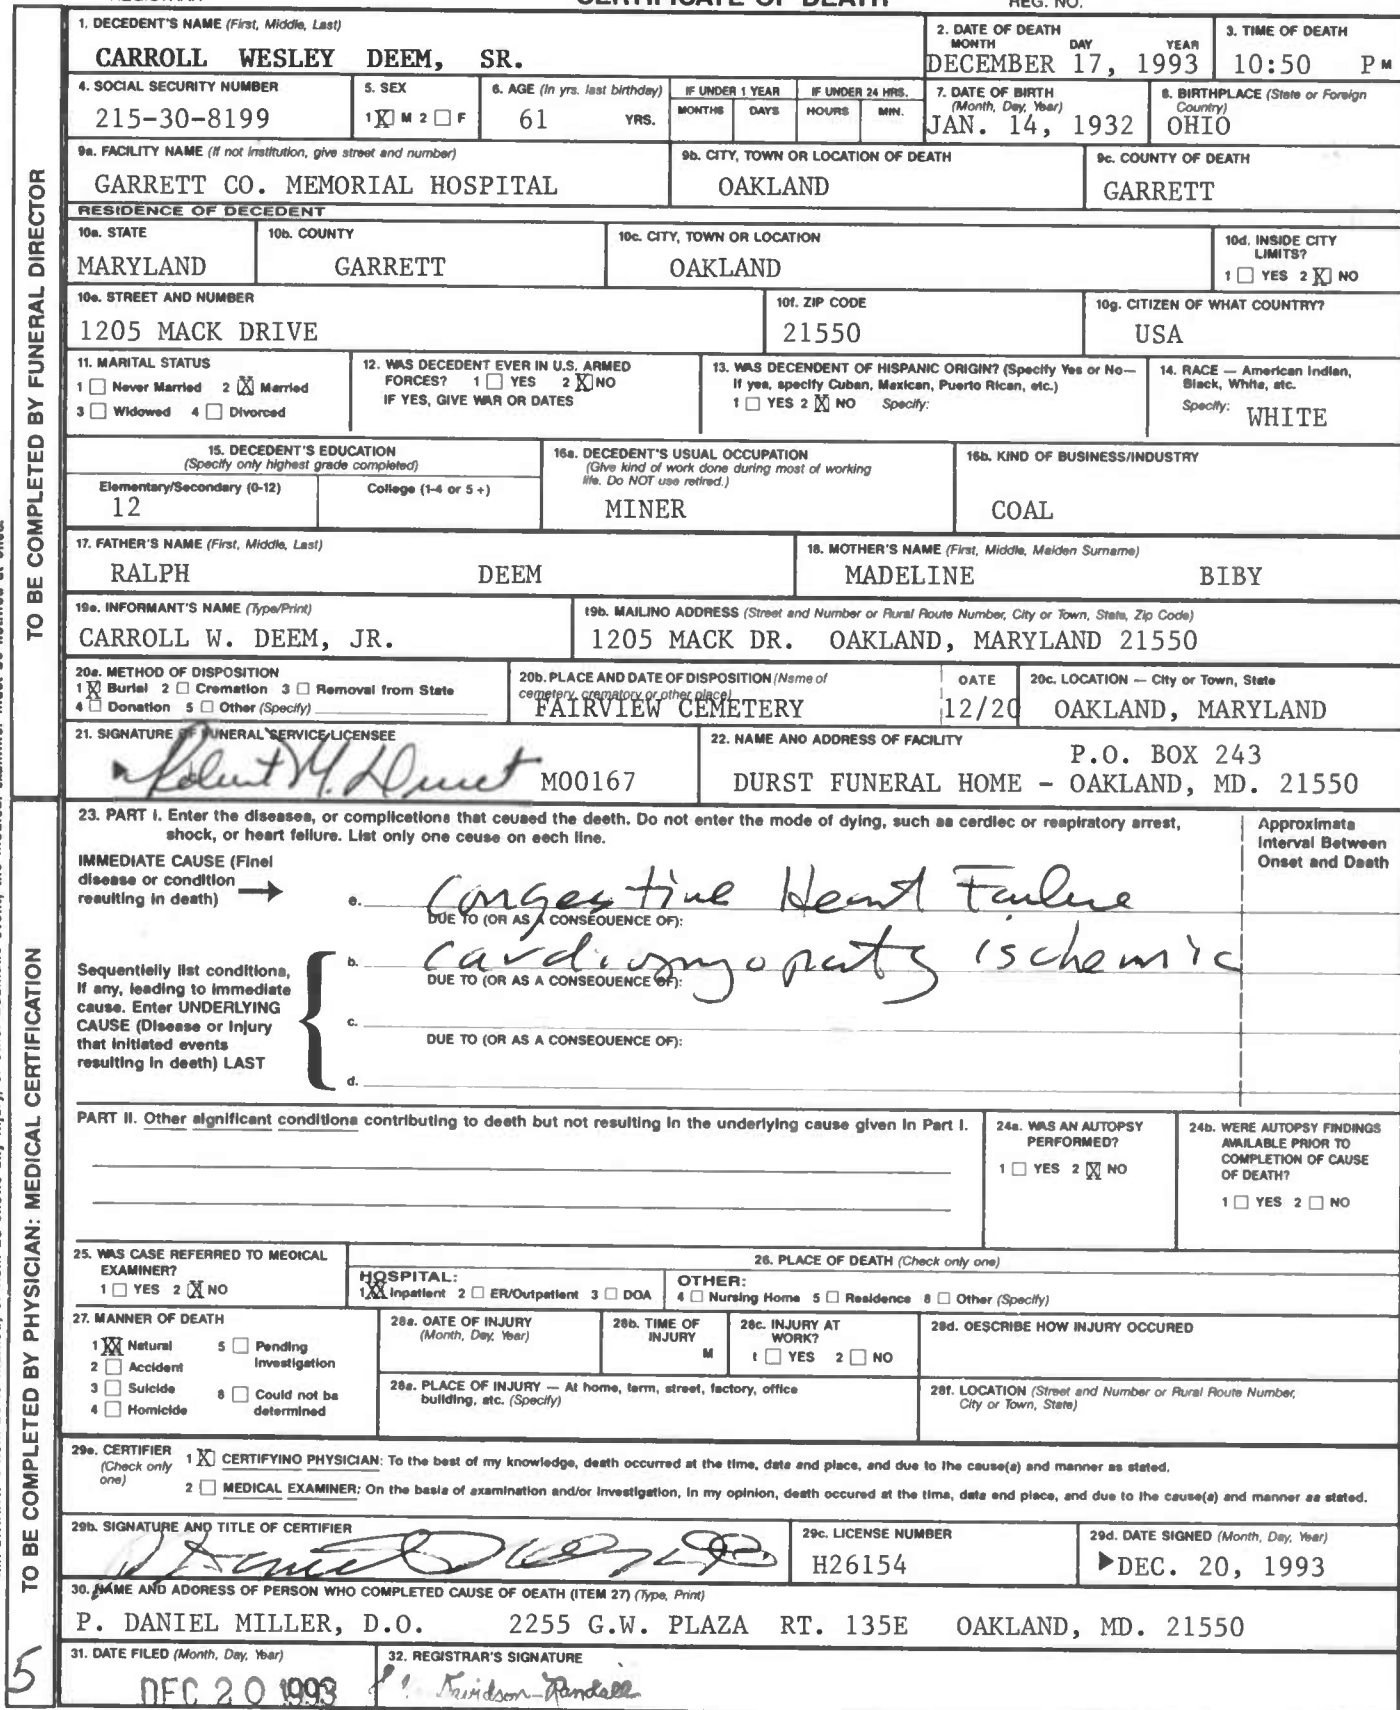 CERTIFICATE OF DEATH
REG. NO.
1. DECEDENT'S NAME (First, Middle, Last)
CARROLL WESLEY DEEM, SR.
2. DATE OF DEATH
MONTH DAY YEAR
DECEMBER 17, 1993
3. TIME OF DEATH
10:50 P M
4. SOCIAL SECURITY NUMBER
215-30-8199
5. SEX
1 X M 2 □ F
6. AGE (In yrs. last birthday)
61 YRS.
IF UNDER 1 YEAR
MONTHS DAYS
IF UNDER 24 HRS.
HOURS MIN.
7. DATE OF BIRTH
(Month, Day, Year)
JAN. 14, 1932
8. BIRTHPLACE (State or Foreign
Country)
OHIO
9a. FACILITY NAME (If not institution, give street and number)
GARRETT CO. MEMORIAL HOSPITAL
9b. CITY, TOWN OR LOCATION OF DEATH
OAKLAND
9c. COUNTY OF DEATH
GARRETT
RESIDENCE OF DECEDENT
10a. STATE
MARYLAND
10b. COUNTY
GARRETT
10c. CITY, TOWN OR LOCATION
OAKLAND
10d. INSIDE CITY
LIMITS?
1 □ YES 2 X NO
10e. STREET AND NUMBER
1205 MACK DRIVE
10f. ZIP CODE
21550
10g. CITIZEN OF WHAT COUNTRY?
USA
11. MARITAL STATUS
1 □ Never Married 2 X Married
3 □ Widowed 4 □ Divorced
12. WAS DECEDENT EVER IN U.S. ARMED
FORCES? 1 □ YES 2 X NO
IF YES, GIVE WAR OR DATES
13. WAS DECENDENT OF HISPANIC ORIGIN? (Specify Yes or No—
If yes, specify Cuban, Mexican, Puerto Rican, etc.)
1 □ YES 2 X NO Specify:
14. RACE — American Indian,
Black, White, etc.
Specify: WHITE
15. DECEDENT'S EDUCATION
(Specify only highest grade completed)
Elementary/Secondary (0-12)
12
College (1-4 or 5+)
16a. DECEDENT'S USUAL OCCUPATION
(Give kind of work done during most of working
life. Do NOT use retired.)
MINER
16b. KIND OF BUSINESS/INDUSTRY
COAL
17. FATHER'S NAME (First, Middle, Last)
RALPH DEEM
18. MOTHER'S NAME (First, Middle, Maiden Surname)
MADELINE BIBY
19a. INFORMANT'S NAME (Type/Print)
CARROLL W. DEEM, JR.
19b. MAILING ADDRESS (Street and Number or Rural Route Number, City or Town, State, Zip Code)
1205 MACK DR. OAKLAND, MARYLAND 21550
20a. METHOD OF DISPOSITION
1 X Burial 2 □ Cremation 3 □ Removal from State
4 □ Donation 5 □ Other (Specify)
20b. PLACE AND DATE OF DISPOSITION (Name of
cemetery, crematory or other place)
FAIRVIEW CEMETERY
DATE
12/20
20c. LOCATION — City or Town, State
OAKLAND, MARYLAND
21. SIGNATURE OF FUNERAL SERVICE LICENSEE
Robert M. Durst M00167
22. NAME AND ADDRESS OF FACILITY
P.O. BOX 243
DURST FUNERAL HOME - OAKLAND, MD. 21550
TO BE COMPLETED BY FUNERAL DIRECTOR
23. PART I. Enter the diseases, or complications that caused the death. Do not enter the mode of dying, such as cardiac or respiratory arrest,
shock, or heart failure. List only one cause on each line.
Approximate
Interval Between
Onset and Death
IMMEDIATE CAUSE (Final
disease or condition
resulting in death)
a. Congestive Heart Failure
DUE TO (OR AS A CONSEQUENCE OF):
b. cardiomyopaty ischemic
DUE TO (OR AS A CONSEQUENCE OF):
c.
DUE TO (OR AS A CONSEQUENCE OF):
d.
Sequentially list conditions,
if any, leading to immediate
cause. Enter UNDERLYING
CAUSE (Disease or Injury
that initiated events
resulting in death) LAST
PART II. Other significant conditions contributing to death but not resulting in the underlying cause given in Part I.
24a. WAS AN AUTOPSY
PERFORMED?
1 □ YES 2 X NO
24b. WERE AUTOPSY FINDINGS
AVAILABLE PRIOR TO
COMPLETION OF CAUSE
OF DEATH?
1 □ YES 2 □ NO
25. WAS CASE REFERRED TO MEDICAL
EXAMINER?
1 □ YES 2 X NO
26. PLACE OF DEATH (Check only one)
HOSPITAL:
1 X Inpatient 2 □ ER/Outpatient 3 □ DOA
OTHER:
4 □ Nursing Home 5 □ Residence 6 □ Other (Specify)
27. MANNER OF DEATH
1 X Natural 5 □ Pending
Investigation
2 □ Accident
3 □ Suicide 6 □ Could not be
determined
4 □ Homicide
28a. DATE OF INJURY
(Month, Day, Year)
28b. TIME OF
INJURY
M
28c. INJURY AT
WORK?
1 □ YES 2 □ NO
28d. DESCRIBE HOW INJURY OCCURED
28e. PLACE OF INJURY — At home, farm, street, factory, office
building, etc. (Specify)
28f. LOCATION (Street and Number or Rural Route Number,
City or Town, State)
29a. CERTIFIER
(Check only
one)
1 X CERTIFYING PHYSICIAN: To the best of my knowledge, death occurred at the time, date and place, and due to the cause(s) and manner as stated.
2 □ MEDICAL EXAMINER: On the basis of examination and/or investigation, in my opinion, death occured at the time, date end place, and due to the cause(s) and manner as stated.
29b. SIGNATURE AND TITLE OF CERTIFIER
29c. LICENSE NUMBER
H26154
29d. DATE SIGNED (Month, Day, Year)
DEC. 20, 1993
30. NAME AND ADDRESS OF PERSON WHO COMPLETED CAUSE OF DEATH (ITEM 27) (Type, Print)
P. DANIEL MILLER, D.O. 2255 G.W. PLAZA RT. 135E OAKLAND, MD. 21550
31. DATE FILED (Month, Day, Year)
DEC 20 1993
32. REGISTRAR'S SIGNATURE
Davidson-Randall
TO BE COMPLETED BY PHYSICIAN: MEDICAL CERTIFICATION
5